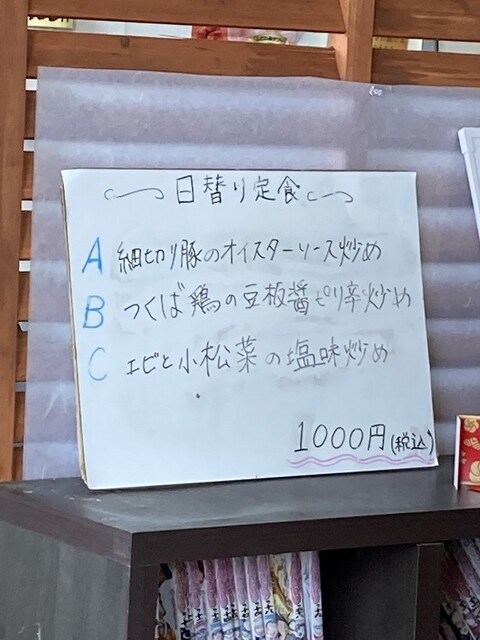 日替り定食
A 細切り豚のオイスターソース炒め
B つくば鶏の豆板醤ピリ辛炒め
C エビと小松菜の塩味炒め
1000円(税込)